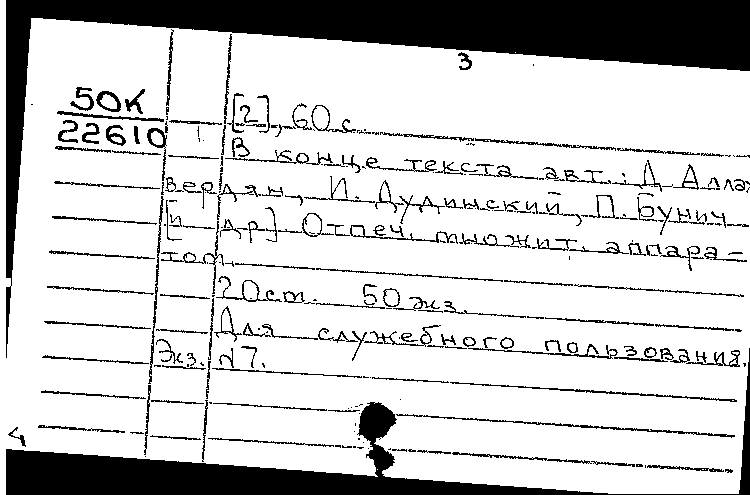 3
50К
22610
[2], 60 с.
В конце текста авт.: Д. Аллах
вердян, И. Дудинский, П. Бунич
[и др.] Отпеч. множит. аппара-
том.
20 ст. 50 экз.
Для служебного пользования.
Экз. №7.